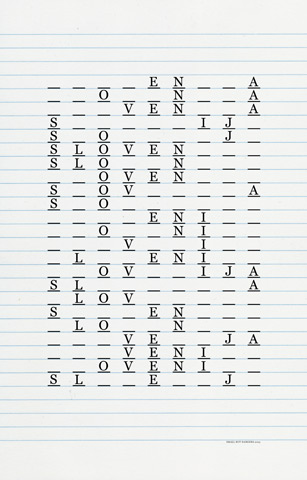 _ _ _ _ E N _ _ A
_ _ O _ _ N _ _ A
_ _ _ V E N _ _ A
S _ _ _ _ _ I J _
S _ O _ _ _ _ J _
S L O V E N _ _ _
S L O _ _ N _ _ _
_ _ O V E N _ _ _
S _ O V _ _ _ _ A
S _ O _ _ _ _ _ _
_ _ _ _ E N I _ _
_ _ O _ _ N I _ _
_ _ _ V _ _ I _ _
_ L _ _ E N I _ _
_ _ O V _ _ I J A
S L _ _ _ _ _ _ A
_ L O V _ _ _ _ _
S _ _ _ E N _ _ _
_ L O _ _ N _ _ _
_ _ _ V E _ _ J A
_ _ _ V E N I _ _
_ _ O V E N I _ _
S L _ _ E _ _ J _